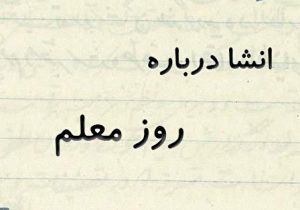 انشا درباره
روز معلم